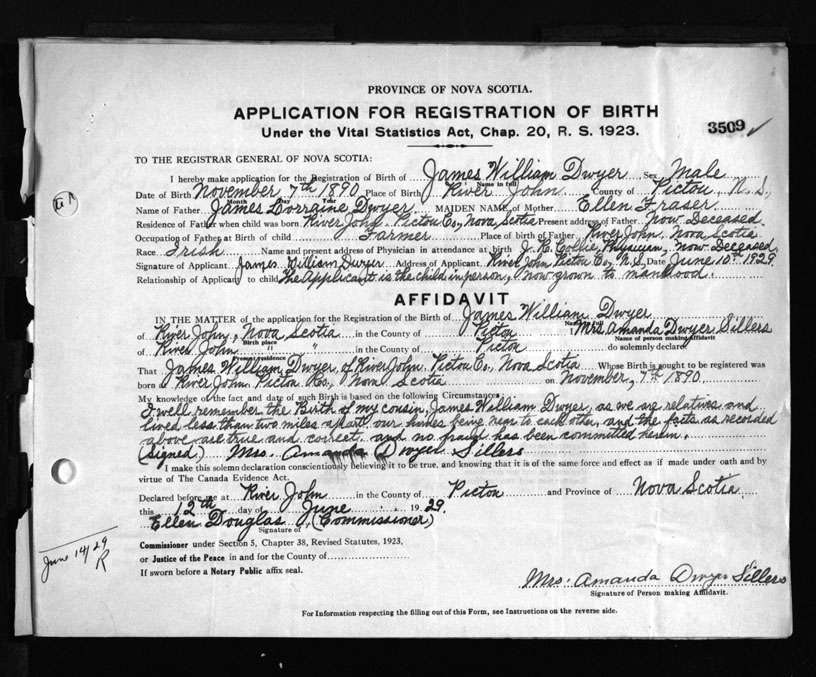 PROVINCE OF NOVA SCOTIA.
APPLICATION FOR REGISTRATION OF BIRTH
3509 ✓
Under the Vital Statistics Act, Chap. 20, R. S. 1923.
TO THE REGISTRAR GENERAL OF NOVA SCOTIA:
I hereby make application for the Registration of Birth of James William Dwyer Sex Male
Name in full
Date of Birth November 7th 1890 Place of Birth River John County of Pictou, N. S.,
Month Day Year
Name of Father James Lorraine Dwyer MAIDEN NAME of Mother Ellen Fraser
Residence of Father when child was born River John, Pictou Co., Nova Scotia Present address of Father Now Deceased
Occupation of Father at Birth of child Farmer Place of birth of Father River John, Nova Scotia
Race Irish Name and present address of Physician in attendance at birth J. R. Collie, Physician, now Deceased,
Signature of Applicant James William Dwyer Address of Applicant River John Pictou Co., N. S. Date June 10th 1929
Relationship of Applicant to child The Applicant is the child in person, now grown to manhood.
AFFIDAVIT
IN THE MATTER of the application for the Registration of the Birth of James William Dwyer
of River John, Nova Scotia in the County of Pictou I Mrs Amanda Dwyer Sillers
Birth place Name of person making Affidavit
of River John " " in the County of Pictou do solemnly declare
Present residence
That James William Dwyer, of River John, Pictou Co., Nova Scotia Whose Birth is sought to be registered was
born at River John Pictou Co., Nova Scotia on November, 7th 1890
My knowledge of the fact and date of such Birth is based on the following Circumstances:
I well remember the Birth of my cousin, James William Dwyer, as we are relatives and
lived less than two miles apart, our homes being near to each other, and the facts as recorded
above are true and correct, and no fraud has been committed herein.
(Signed) Mrs. Amanda Dwyer Sillers
I make this solemn declaration conscientiously believing it to be true, and knowing that it is of the same force and effect as if made under oath and by
virtue of The Canada Evidence Act.
Declared before me at River John in the County of Pictou and Province of Nova Scotia
this 12th day of June 1929.
Ellen Douglas (Commissioner)
Signature of
Commissioner under Section 5, Chapter 38, Revised Statutes, 1923,
or Justice of the Peace in and for the County of
If sworn before a Notary Public affix seal.
June 14/29
R
Mrs. Amanda Dwyer Sillers
Signature of Person making Affidavit.
For Information respecting the filling out of this Form, see Instructions on the reverse side.